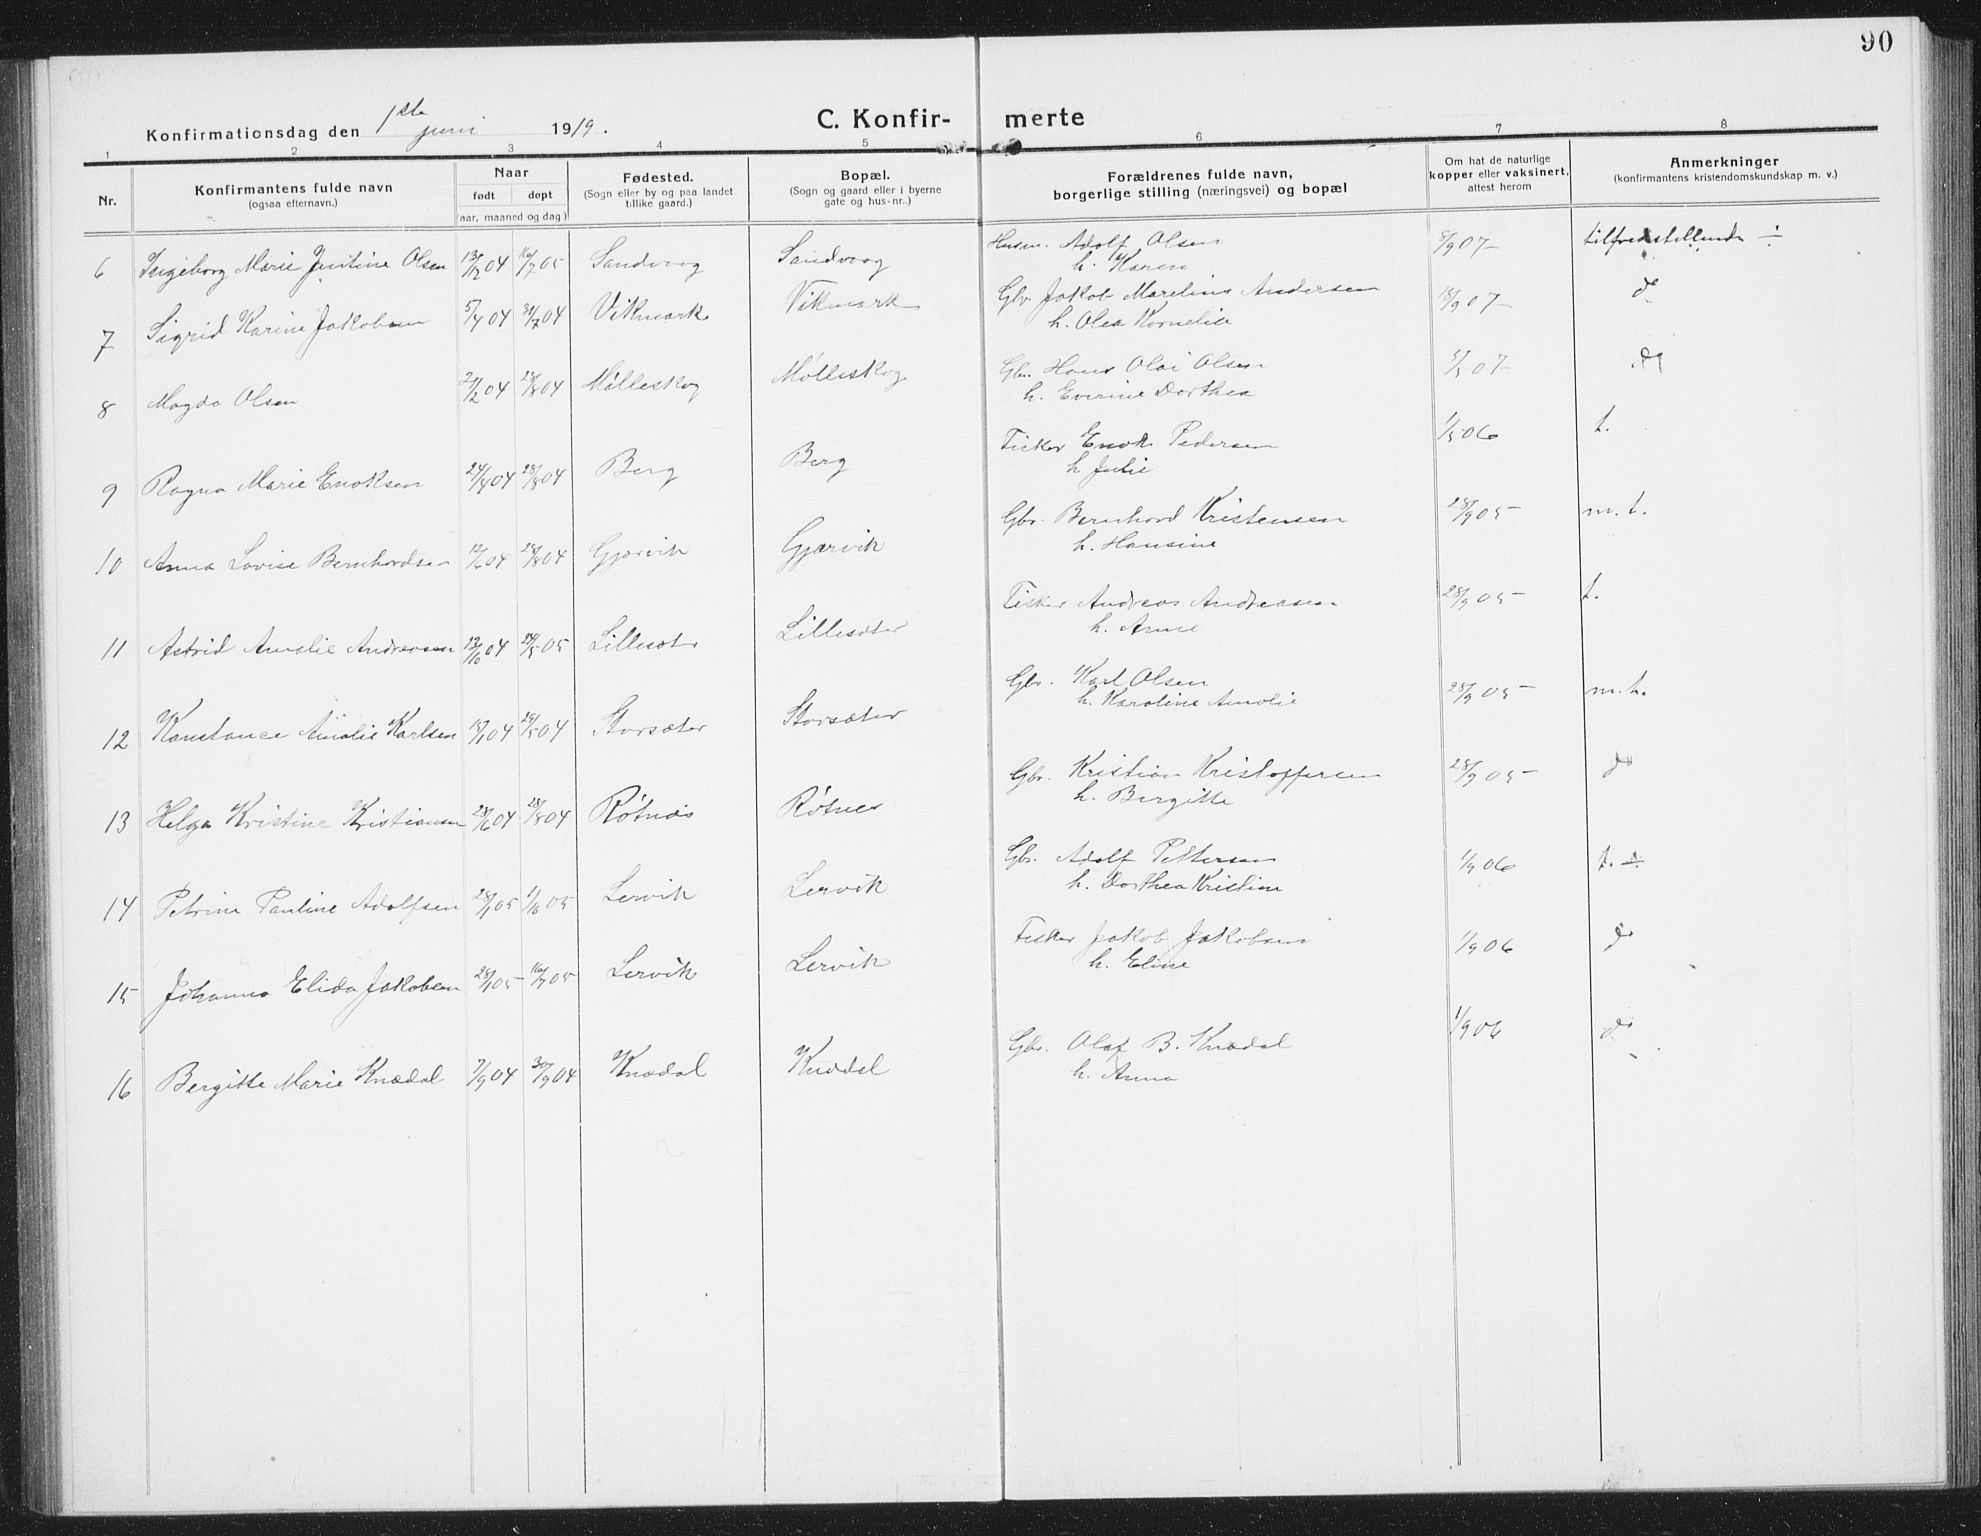 90
Konfirmationsdag den 1ste juni 1919. C. Konfir- merte
1 2 3 4 5 6 7 8
Nr. Konfirmantens fulde navn (ogsaa efternavn.) Naar født døpt (aar, maaned og dag) Fødested. (Sogn eller by og paa landet tillike gaard.) Bopæl. (Sogn og gaard eller i byerne gate og hus-nr..) Forældrenes fulde navn, borgerlige stilling (næringsvei) og bopæl Om hat de naturlige kopper eller vaksinert, attest herom Anmerkninger (konfirmantens kristendomskundskap m. v.)
6 Ingeborg Marie Jentine Olsen 13/2 04 16/7 05 Sandvaag Sandvaag Husm. Adolf Olsen 8/9 07 tilfredsstillende ÷
h. Karen
7 Sigrid Karine Jakobsen 5/4 04 31/7 04 Vikmark Vikmark Gbr. Jakob Marelius Andersen 18/9 07 do
h. Olea Kornelie
8 Magda Olsen 27/2 04 28/8 04 Mølleskog Mølleskog Gbr. Hans Olai Olsen 07 do
h. Everine Dorthea
9 Ragna Marie Enoksen 24/4 04 28/8 04 Berg Berg Fisker Enok Pedersen 1/5 06 t.
h. Julie
10 Anna Lovise Bernhardsen 12/6 04 28/8 04 Gjærvik Gjærvik Gbr. Bernhard Kristensen 28/9 05 m.t.
h. Hansine
11 Astrid Amalie Andreasen 12/10 04 24/5 05 Lillesæter Lillesæter Fisker Andreas Andreasen 28/9 05 t.
h. Anne
12 Konstance Amalie Karlsen 18/1 04 29/5 04 Storsæter Storsæter Gbr. Karl Olsen 28/9 05 m.t.
h. Karoline Amalie
13 Helga Kristine Kristiansen 28/6 04 28/8 04 Røtnes Røtnes Gbr. Kristian Kristoffersen 28/9 05 do
h. Bergitte
14 Petrine Pauline Adolfsen 28/1 05 1/10 05 Lervik Lervik Gbr. Adolf Pettersen 1/9 06 t. ÷
h. Dorthea Kristine
15 Johanna Elida Jakobsen 28/1 05 16/7 05 Lervik Lervik Fisker Jakob Jakobsen 1/9 06 do
h. Eline
16 Bergitte Marie Knædal 7/9 04 30/9 04 Knædal Knædal Gbr. Olaf B. Knædal 1/9 06 do
h. Anna